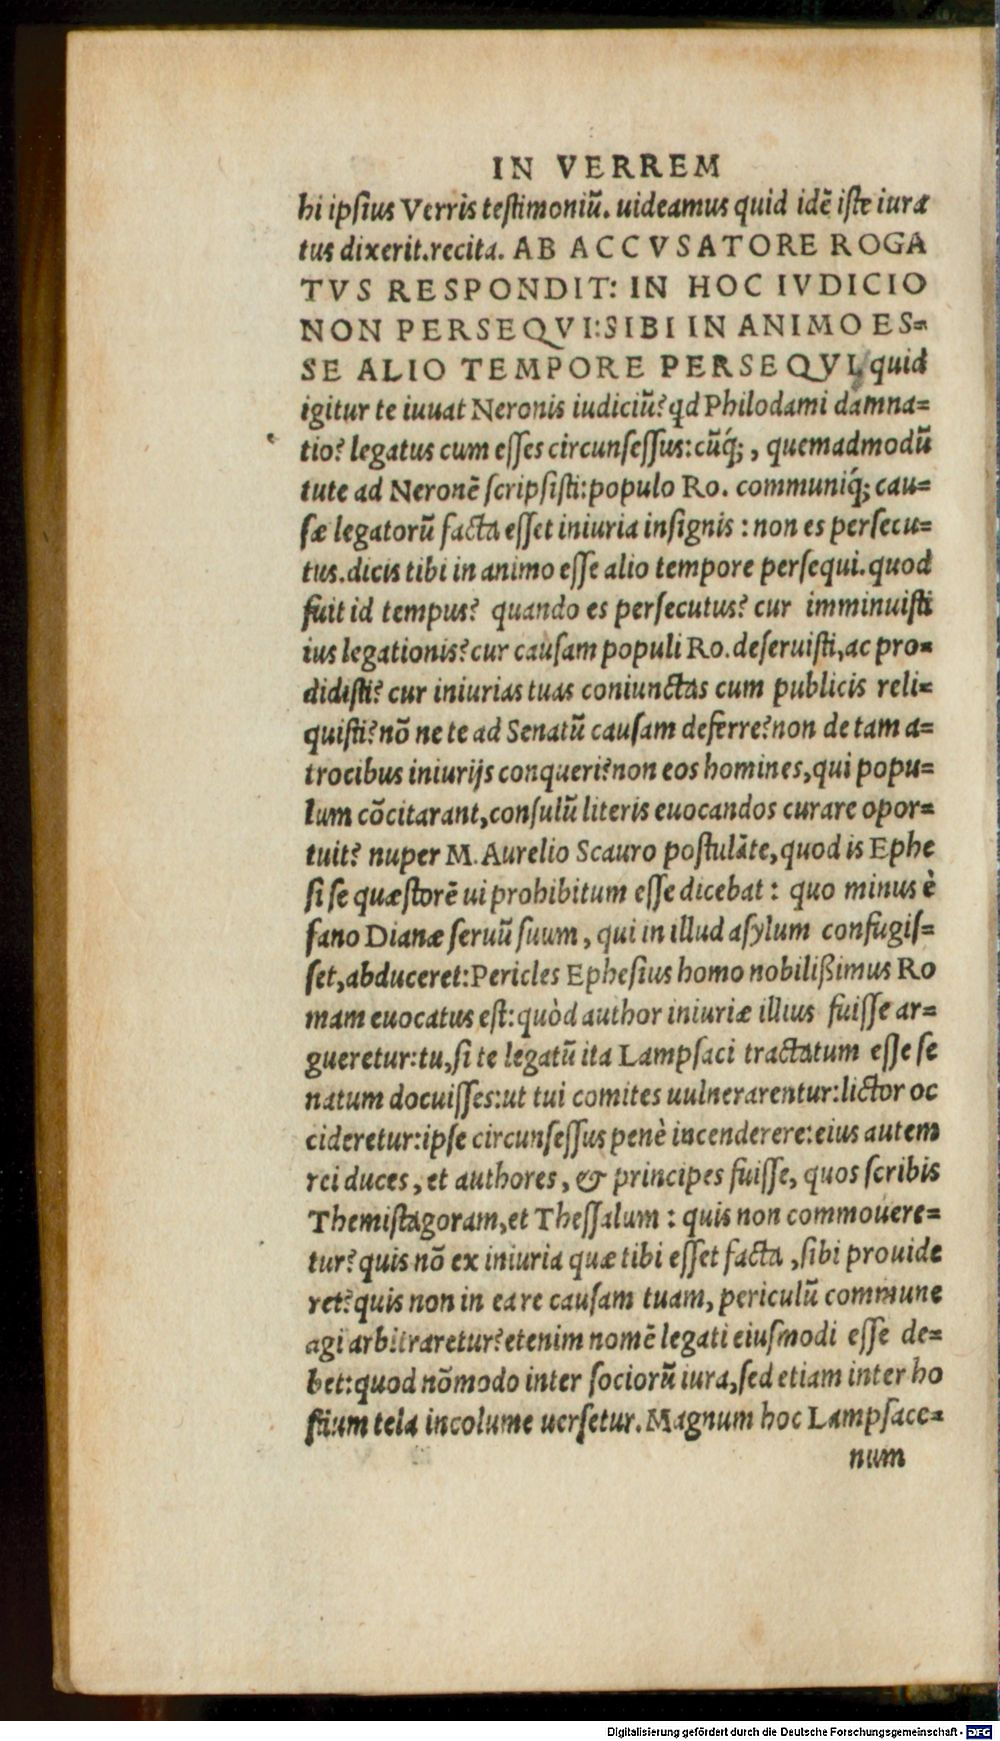 IN VERREM
hi ipsius Verris testimoniũ. uideamus quid idẽ iste iura
tus dixerit.recita. AB ACCVSATORE ROGA
TVS RESPONDIT: IN HOC IVDICIO
NON PERSEQVI:SIBI IN ANIMO ES=
SE ALIO TEMPORE PERSEQVI, quid
igitur te iuuat Neronis iudiciũ? qd Philodami damna=
tio? legatus cum esses circunsessus:cũq́;, quemadmodũ
tute ad Neronẽ scripsisti:populo Ro. communiq́; cau=
sæ legatorũ facta esset iniuria insignis : non es persecu=
tus.dicis tibi in animo esse alio tempore persequi.quod
fuit id tempus? quando es persecutus? cur imminuisti
ius legationis?cur causam populi Ro.deseruisti,ac pro=
didisti? cur iniurias tuas coniunctas cum publicis reli=
quisti?nõ ne te ad Senatũ causam deferre?non de tam a=
trocibus iniurijs conqueri?non eos homines,qui popu=
lum cõcitarant,consulũ literis euocandos curare opor=
tuit? nuper M. Aurelio Scauro postulãte,quod is Ephe
si se quæstorẽ ui prohibitum esse dicebat : quo minus è
fano Dianæ seruũ suum, qui in illud asylum confugis=
set,abduceret:Pericles Ephesius homo nobilißimus Ro
mam euocatus est:quòd author iniuriæ illius fuisse ar=
gueretur:tu,si te legatũ ita Lampsaci tractatum esse se
natum docuisses:ut tui comites uulnerarentur:lictor oc
cideretur:ipse circunsessus penè incenderere:eius autem
rei duces, et authores, & principes fuisse, quos scribis
Themistagoram,et Thessalum : quis non commouere=
tur?quis nõ ex iniuria quæ tibi esset facta ,sibi prouide
ret?quis non in ea re causam tuam, periculũ commune
agi arbitraretur?etenim nomẽ legati eiusmodi esse de=
bet:quod nõmodo inter sociorũ iura,sed etiam inter ho
stium tela incolume uersetur.Magnum hoc Lampsace=
num
Digitalisierung gefördert durch die Deutsche Forschungsgemeinschaft - DFG